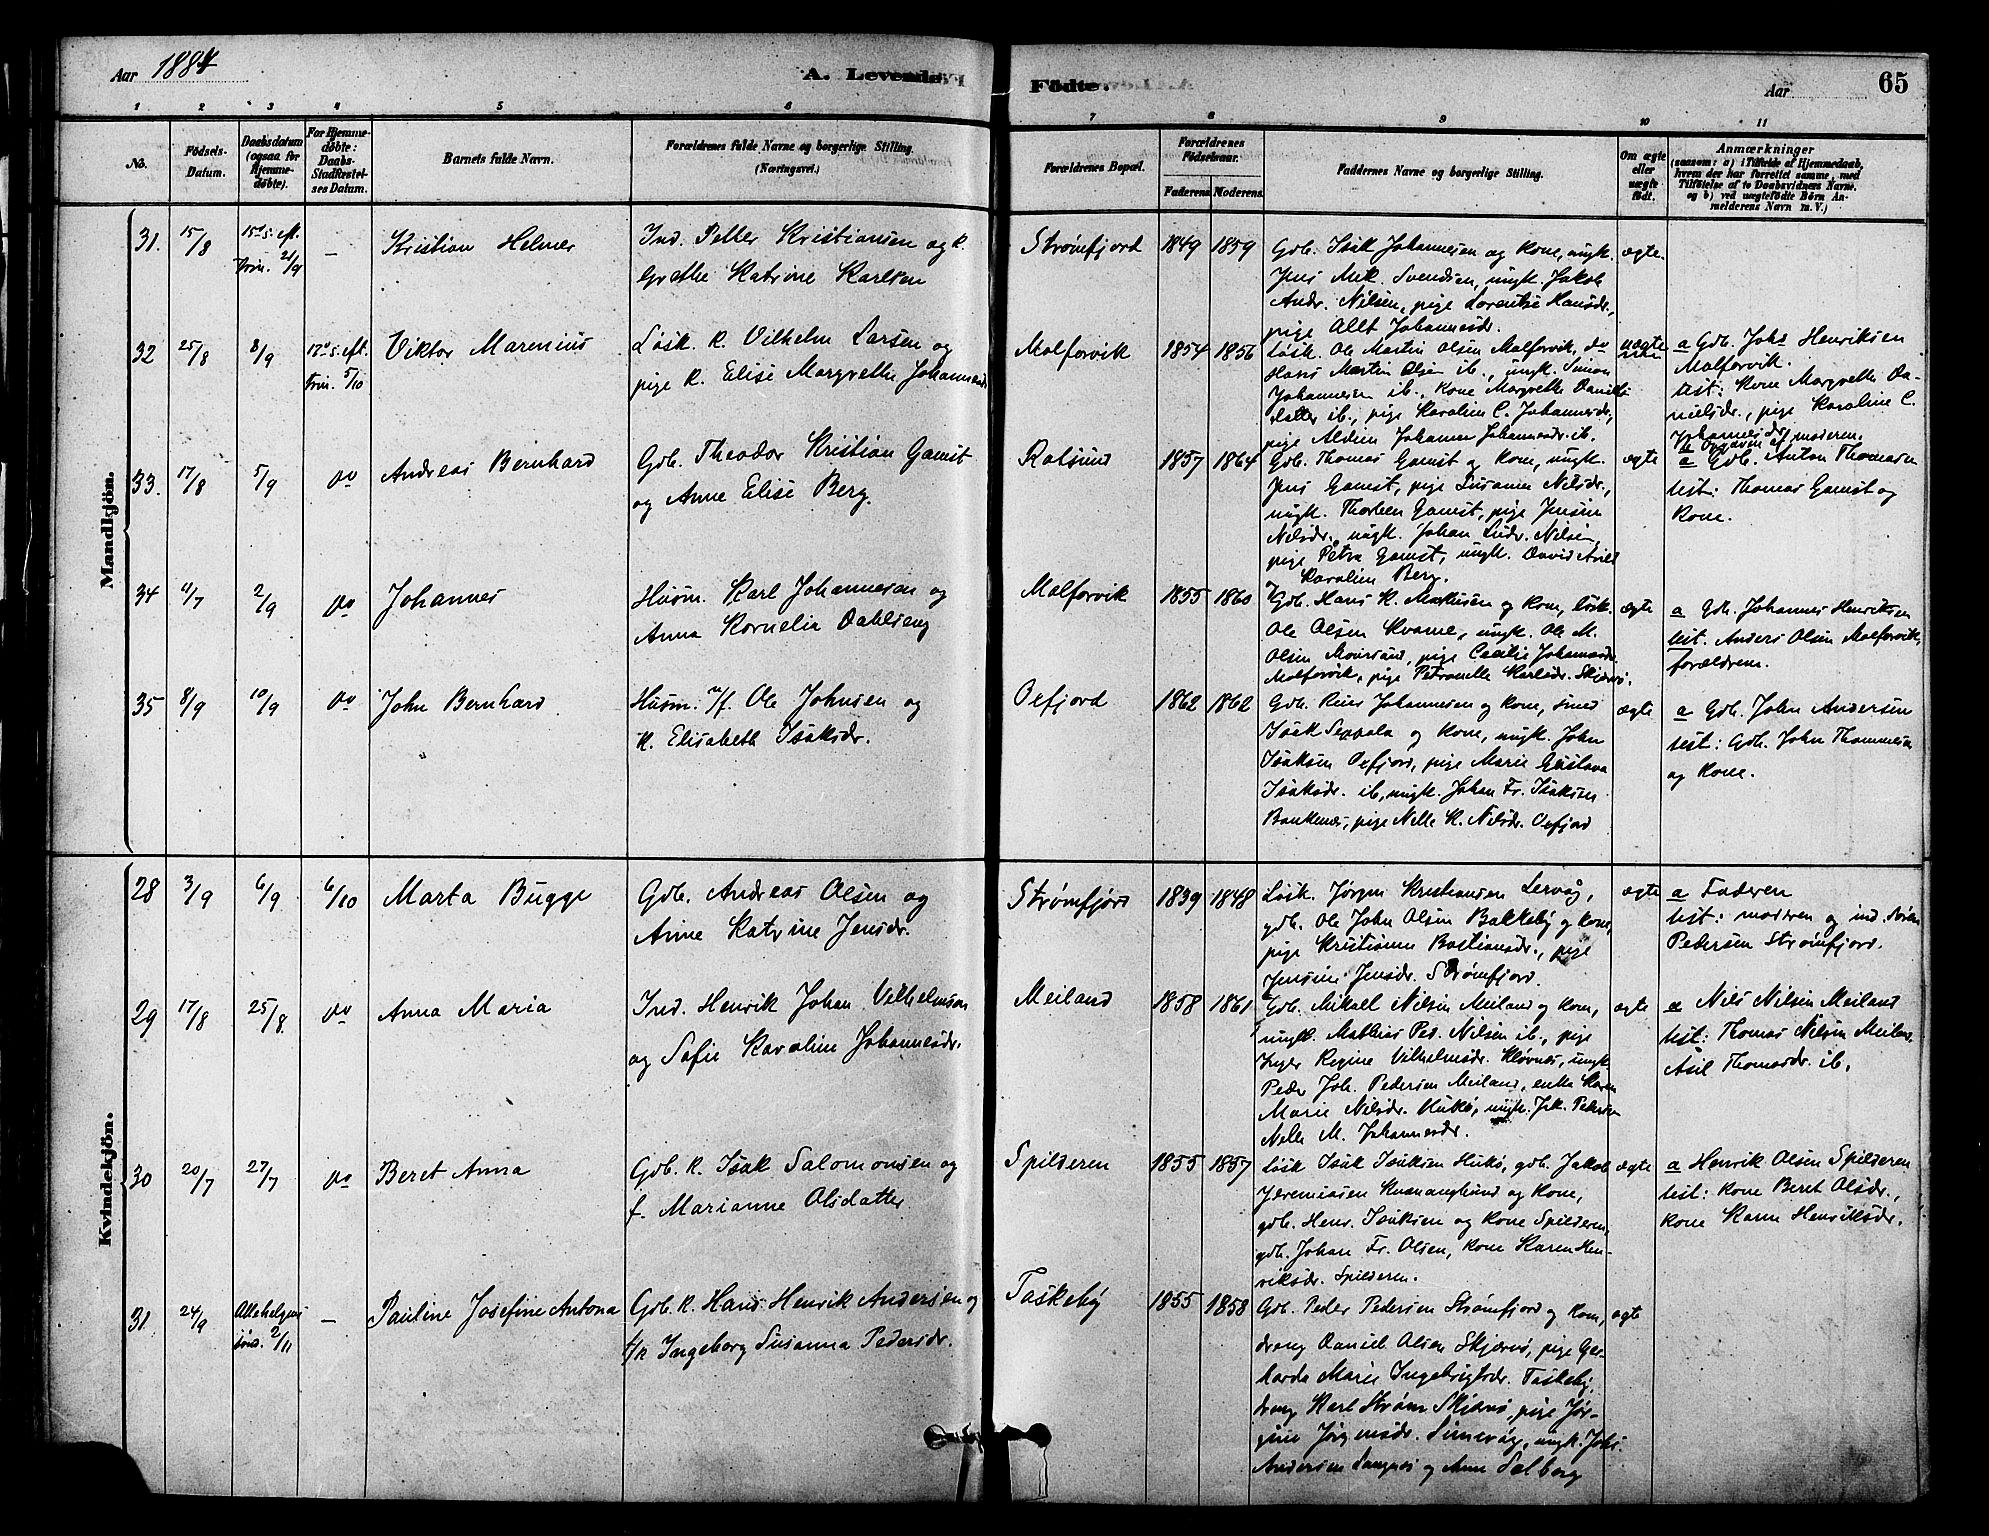 Aar 1884
A. Levende
Födte.
Aar
65
1 2 3 4 5 6 7 8 9 10 11
No.
Födsels-
Datum.
Daabsdatum
(ogsaa for
Hjemme-
døbte).
For Hjemme-
døbte:
Daabs-
Stadfæstel-
ses Datum.
Barnets fulde Navn.
Forældrenes fulde Navne og borgerlige Stilling.
(Næringsvei.)
Forældrenes Bopæl.
Forældrenes
Födselsaar.
Faderens. Moderens.
Faddernes Navne og borgerlige Stilling.
Om ægte
eller
uægte
födt.
Anmærkninger
(saasom: a) i Tilfælde af Hjemmedaab,
hvem der har forrettet samme, med
Tilföielse af to Daabsvidners Navne.
og b) ved uægtefödte Börn An-
melderens Navn m. V.)
Mandkjön.
31. 15/8 15de S. eft. trin. 21/9 – Kristian Helmer
Ind. Petter Kristiansen og k.
Grethe Katrine Karlsen
Strømfjord 1849 1859
Gdb. Isak Johannesen og kone, ungk.
Jens Mek. Svendsen, ungk. Jakob
Andr. Nilsen, pige Lorentse Hansdr.,
pige Allt Johannesdr.
ægte.
32 25/8 8/9 17de S. eft. trin. 5/10 Viktor Marenius
Løsk. K. Vilhelm Larsen og
pige K. Elise Margrethe Johannesdr
Malforvik 1854 1856
Løsk. Ole Martin Olsen Malforvik, do
Hans Martin Olsen ib., ungk. Simon
Johannesen ib., Kone Margrethe Daniels-
datter ib., pige Karoline C. Johannesdr.,
pige Aldien Johanna Johannesdr. ib.
uægte
a Gdb. Johs Henriksen
Malforvik.
test: Kone Margrethe Da-
nielsdr., pige Karoline C.
Johannesdr.
b Opgaven af moderen.
33. 17/8 5/9 do Andreas Bernhard
Gdb. Theodor Kristian Gamst
og Anne Elise Berg.
Rotsund 1857 1864
Gdb. Thomas Gamst og Kone, ungk.
Jens Gamst, pige Susanna Nilsdr.,
ungk. Thorleen Gamst, pige Jensine
Nilsdr., ungk. Johan Ludv. Nilsen,
pige Petra Gamst, ungk. David
og Karoline Berg.
ægte
a Gdb. Anton Thomesen
test: Thomas Gamst og
Kone.
34 11/7 2/9 do Johannes
Husm. Karl Johannesen og
Anna Kornelia Dahlseng
Malforvik 1855 1860
Gdb. Hans K. Markusen og Kone, løsk.
Ole Olsen Kvame, ungk. Ole M.
Olsen Maursund, pige Cecilie Johannesdr.
Malforvik, pige Petronelle Karlsdr. Skjervø.
ægte
a Gdb. Johannes Henriksen
test. Anders Olsen Malforvik,
forældrene.
35 8/9 10/9 do John Bernhard
Husm. n/f. Ole Johnsen og
K. Elisabeth Isaksdr.
Oxfjord 1862 1862
Gdb. Reier Johannesen og Kone, smed
Isak Seppala og Kone, ungk. John
Isaksen Oxfjord, pige Marie Gustava
Isaksdr. ib, ungk. Johan Fr. Isaksen
Bankenes, pige Nelle K. Nilsdr. Oxfjord
ægte
a Gdb. John Andersen
test: Gdb. John Thommesen
og Kone.
Kvindekjön.
28 3/9 6/9 6/10 Marta Bugge
Gdb. Andreas Olsen og
Anne Katrine Jensdr.
Strømfjord 1839 1848
Løsk. Jørgen Kristiansen Lervåg,
gdb. Ole John Olsen Bakkeby og Kone,
pige Kristianna Bastiansdr., pige
Jensine Jensdr. Strømfjord.
ægte
a Faderen
test: moderen og ind. Søren
Pedersen Strømfjord.
29 17/8 25/8. do Anna Maria
Ind. Henrik Johan Vilhelmsen
og Sofie Karoline Johannesdr.
Meiland 1858 1861
Gdb. Mikael Nilsen Meiland og Kone,
ungk. Mathias Ped. Nilsen ib., pige
Inger Regine Vilhelmsdr. Kløvnes, ungk.
Peder Joh. Pedersen Meiland, enke Karen
Marie Nilsdr. Hukø, ungk. Joh. Pedersen
Nelle M. Johannesdr.
ægte
a Nils Nilsen Meiland
test: Thomas Nilsen Meiland,
Asil Thomasdr. ib.
30 20/7 27/7 do Beret Anna
Gdb. K. Isak Salomonsen og
f. Marianne Olsdatter
Spilderen 1855 1857
Løsk Isak Isaksen Hukø, gdb. Jakob
Jeremiasen Kvænangsund og Kone,
gdb. Henr. Isaksen og Kone Spilderen,
gdb. Johan Fr. Olsen, Kone Karen Hen-
riksdr. Spilderen.
ægte
a Henrik Olsen Spilderen
test: Kone Beret Olsdr.,
Kone Karen Henriksdr.
31. 24/9 Allehelgens sønd. 2/11 – Pauline Josefine Antona
Gdb. K. Hans Henrik Andersen og
f/k Ingeborg Susanna Pedersdr.
Taskeby 1855 1858
Gdb. Peder Pedersen Strømfjord og Kone,
dreng Daniel Olsen Skjervø, pige Ger-
harda Marie Ingebrigtsdr. Taskeby,
dreng Karl Strøm Skjervø, pige Jør-
gine Jørgensdr. Simevåg, ungk. Johs.
Andersen Langnes og Anne Solborg
ægte